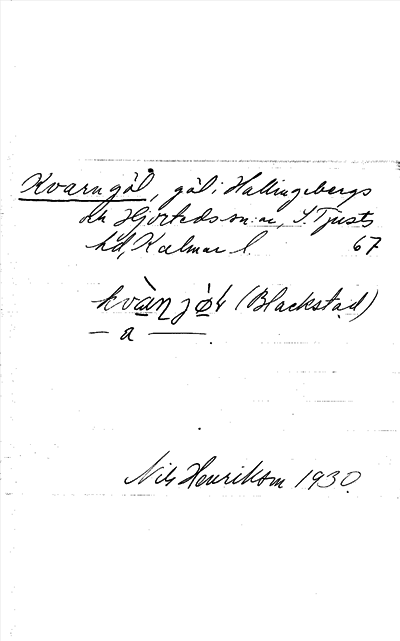 Kvarngöl, göl i Hallingebergs
och Hjorteds sn:ar, S. Tjusts
hd, Kalmar l. 67
kvànjö̀ɫ (Blackstad)
— a —
Nils Henrikson 1930